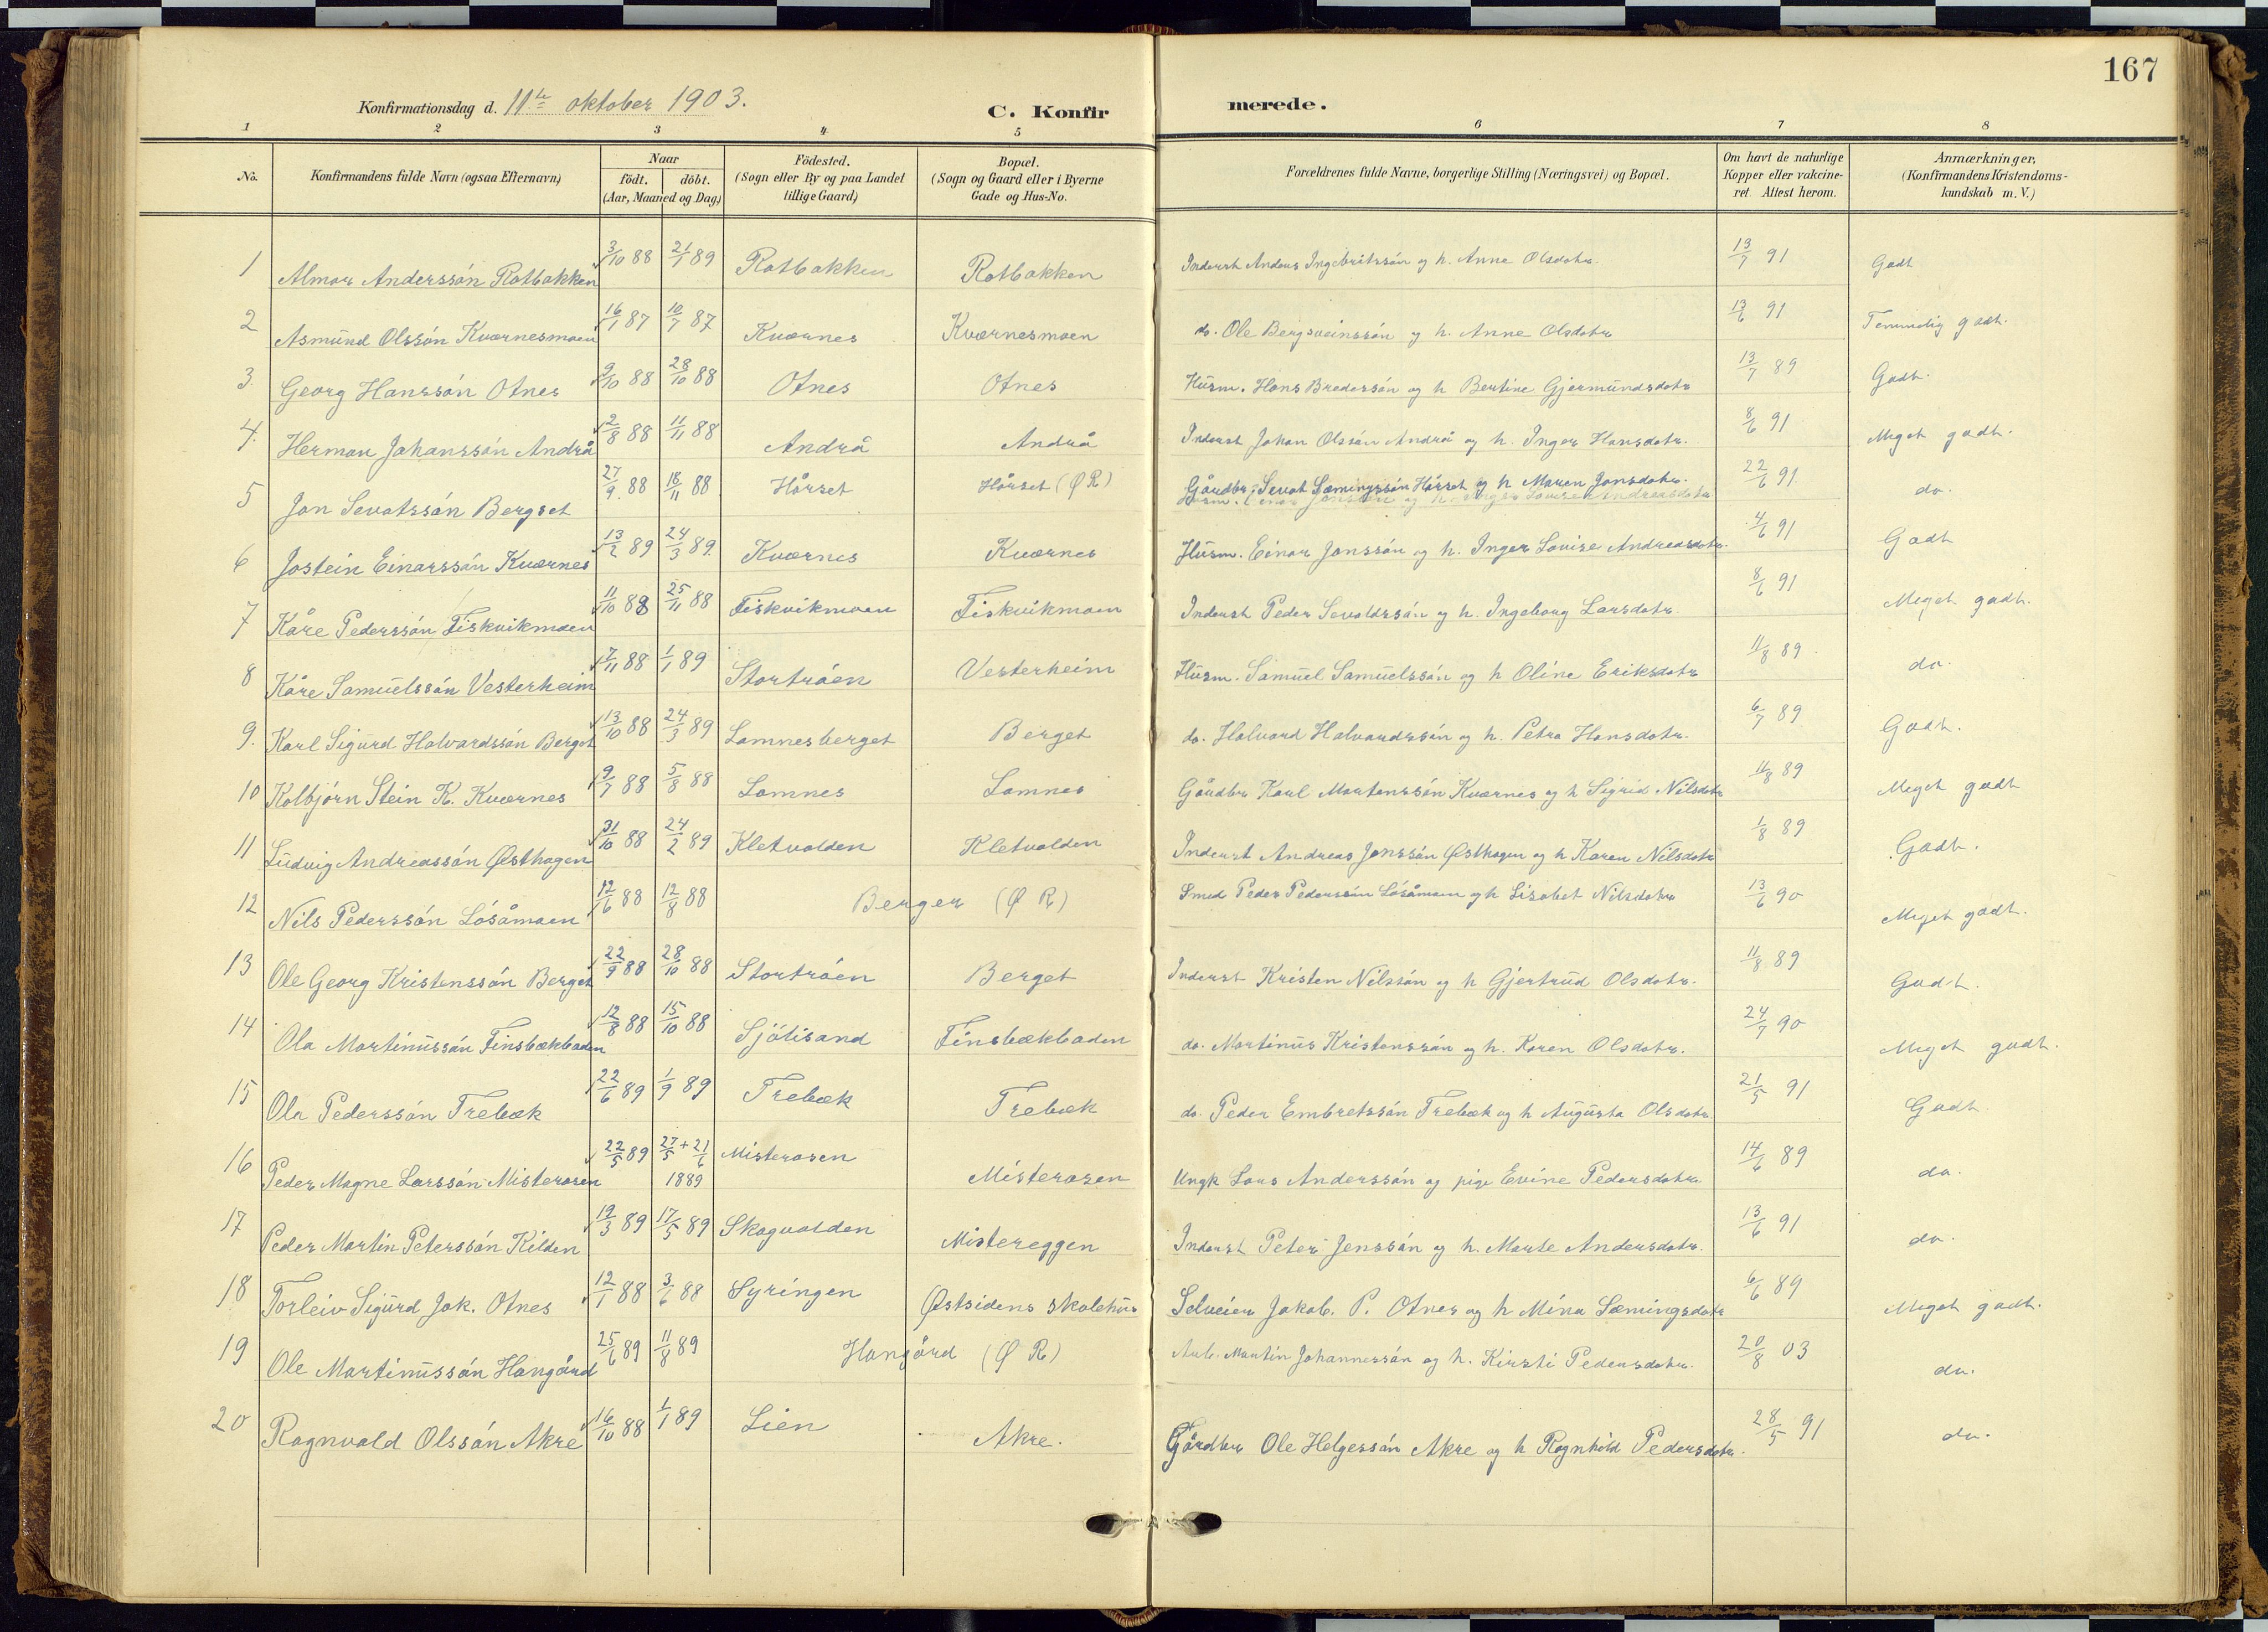 167
Konfirmationsdag d. 11te oktober 1903.
C. Konfirmerede.
1 2 3 4 5 6 7 8
No.
Konfirmandens fulde Navn (ogsaa Efternavn)
Naar
födt. döbt.
(Aar, Maaned og Dag)
Födested.
(Sogn eller By og paa Landet
tillige Gaard)
Bopæl.
(Sogn og Gaard eller i Byerne
Gade og Hus-No.
Forældrenes fulde Navne, borgerlige Stilling (Næringsvei) og Bopæl.
Om havt de naturlige
Kopper eller vakcine-
ret. Attest herom.
Anmærkninger.
(Konfirmandens Kristendoms-
kundskab m. V.)
1 Almar Anderssón Rotbakken 3/10 88 21/1 89 Rotbakken Rotbakken Inderst Anders Ingebritssón og h. Anne Olsdotr. 13/7 91 Godt
2 Asmund Olssón Kværnesmoen 16/1 87 10/7 87 Kværnes Kværnesmoen do. Ole Bergsveinssón og h. Anne Olsdotr 13/6 91 Temmelig godt.
3. Georg Hanssón Otnes 9/10 88 28/10 88 Otnes Otnes Husm. Hans Brederssón og h Bertine Gjermundsdotr 13/7 89 Godt.
4. Herman Johanssón Andrå 12/8 88 11/11 88 Andrå Andrå Inderst Johan Olssón Andrå og h. Inger Hansdotr. 8/6 91 Meget godt.
5 Jon Sevatssón Bergset 27/9 88 18/11 88 Hårset Hårset (Ø R) Gårdbr. Sevat Sæmingssón Hårset og h Maren Jonsdotr. 22/6 91 do.
6 Jostein Einarssón Kværnes 13/2 89 24/3 89 Kværnes Kværnes Husm. Einar Jonssón og h. Inger Lovise Andreasdotr. 4/6 91 Godt
7 Kåre Pederssón Fiskvikmoen 11/10 88 25/11 88 Fiskvikmoen Fiskvikmoen Inderst Peder Sevaldssón og h. Ingeborg Larsdotr. 8/6 91 Meget godt.
8 Kåre Samuelssón Vesterheim 7/11 88 1/1 89 Stortróen Vesterheim Husm. Samuel Samuelssón og h Oline Eriksdotr 11/8 89 do.
9. Karl Sigurd Halvardssón Berget 13/10 88 24/3 89 Lomnesberget Berget do. Halvard Halvardssón og h. Petra Hansdotr. 6/7 89 Godt.
10 Kolbjórn Stein K. Kværnes 9/7 88 5/8 88 Lomnes Lomnes Gårdbr Karl Mortenssón Kværnes og h Sigrid Nilsdotr 11/8 89 Meget godt
11 Ludvig Andreassón Østhagen 31/10 88 24/2 89 Kletvolden Kletvolden Inderst Andreas Jonssón Østhagen og h Karen Nilsdotr 1/8 89 Godt.
12 Nils Pederssón Lósåmoen 12/6 88 12/8 88 Berger (Ø R) Smed Peder Pederssón Lósåmoen og h Lisabet Nilsdotr 13/6 90 Meget godt.
13 Ole Georg Kristenssón Berget 22/9 88 28/10 88 Stortróen Berget Inderst Kristen Nilssón og h Gjertrud Olsdotr. 11/8 89 Godt.
14 Ola Martinussón Finsbækbaden 12/8 88 15/10 88 Sjölisand Finsbækbaden do. Martinus Kristenssón og h. Karen Olsdotr. 24/7 90 Meget godt.
15 Ola Pederssón Trebæk 22/6 89 1/9 89 Trebæk Trebæk do. Peder Embretssón Trebæk og h Augusta Olsdotr. 21/5 91 Godt
16 Peder Magne Larssón Misterosen 22/5 89 27/5 + 21/6 1889 Misterosen Misterosen Ungk Lars Anderssón og pige Evine Pedersdotr. 14/6 89 do.
17 Peder Martin Peterssón Kilden 19/3 89 17/5 89 Skogvolden Mistereggen Inderst Peter Jenssón og h. Marte Andersdotr. 13/6 91 do.
18 Torleiv Sigurd Jak. Otnes 12/1 88 3/6 88 Syringen Østsidens skolehus Selveier Jakob. P. Otnes og h Mina Sæmingsdotr 6/6 89 Meget godt.
19 Ole Martinussón Hangård 25/6 89 11/8 89 Hangård (Ø R) Arb. Martin Johannessón og h. Kirsti Pedersdotr. 20/8 03 do.
20 Ragnvald Olssón Akre 16/10 88 1/1 89 Lien Akre. Gårdbr Ole Helgessón Akre og h Ragnhild Pedersdotr. 28/5 91 do.